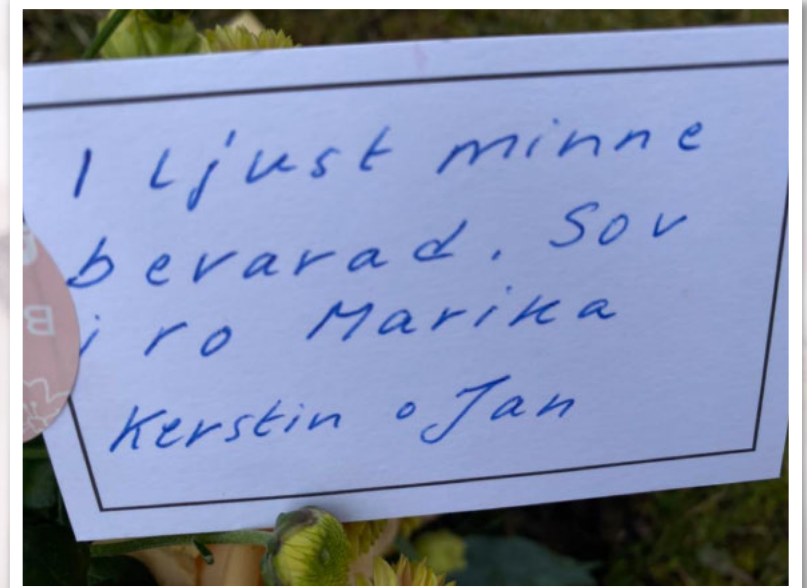 I ljust minne
bevarad. Sov
i ro Marika
Kerstin o Jan
B